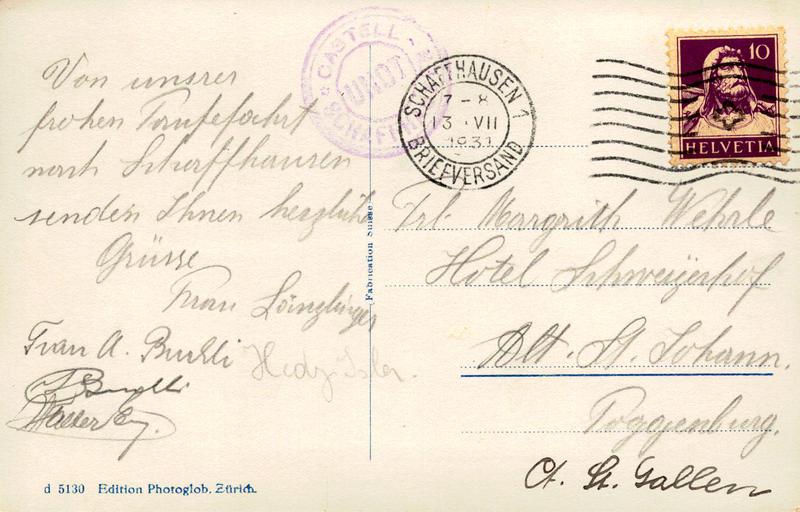 Von unsrer
frohen Taufefahrt
nach Schaffhausen
senden Ihnen herzliche
Grüsse
Frau
Frau A. Buchli
Hedy Isler.
CASTELL-
UNOT
SCHAFFH
SCHAFFHAUSEN 1
7-8
13.VII
1931
BRIEFVERSAND
10
HELVETIA
Fabrication Suisse
Frl. Margrith Wehrle
Hotel Schweizerhof
Alt. St. Johann.
Toggenburg.
Ct. St. Gallen
d 5130 Edition Photoglob, Zürich.